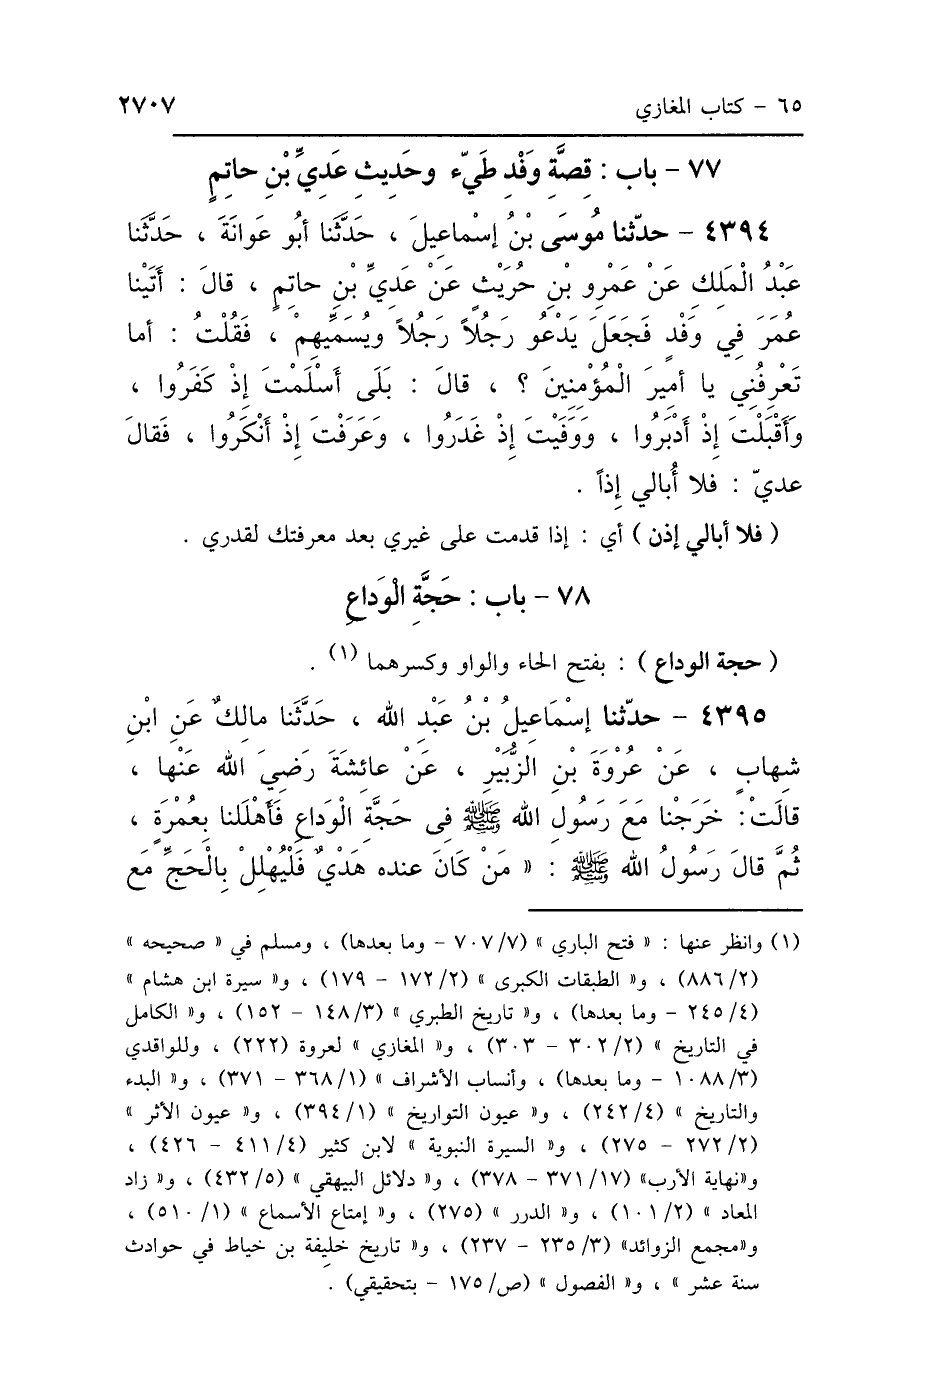 ٦٥ - كتاب المغازي ٢٧٠٧
٧٧ - باب : قِصَّةِ وَفْدِ طَيّء وحَدِيثِ عَدِيِّ بْنِ حاتِمٍ
٤٣٩٤ - حدّثنا مُوسَى بْنُ إسْماعِيلَ ، حَدَّثَنا أبُو عَوانَةَ ، حَدَّثَنا
عَبْدُ الْمَلِكِ عَنْ عَمْرِو بْنِ حُرَيْثٍ عَنْ عَدِيِّ بْنِ حاتِمٍ ، قالَ : أَتَيْنا
عُمَرَ فِي وَفْدٍ فَجَعَلَ يَدْعُو رَجُلاً رَجُلاً ويُسَمِّيهِمْ ، فَقُلْتُ : أما
تَعْرِفُنِي يا أمِيرَ الْمُؤْمِنِينَ ؟ ، قالَ : بَلَى أَسْلَمْتَ إذْ كَفَرُوا ،
وَأَقْبَلْتَ إذْ أَدْبَرُوا ، وَوَفَيْتَ إذْ غَدَرُوا ، وَعَرَفْتَ إذْ أَنْكَرُوا ، فَقالَ
عديّ : فلا أُبالي إذاً .
( فلا أبالي إذن ) أي : إذا قدمت على غيري بعد معرفتك لقدري .
٧٨ - باب : حَجَّةِ الْوَداعِ
( حجة الوداع ) : بفتح الحاء والواو وكسرهما (١) .
٤٣٩٥ - حدّثنا إسْمَاعِيلُ بْنُ عَبْدِ الله ، حَدَّثَنا مالِكٌ عَنِ ابْنِ
شِهابٍ ، عَنْ عُرْوَةَ بْنِ الزُّبَيْرِ ، عَنْ عائِشَةَ رَضِيَ الله عَنْها ،
قالَتْ: خَرَجْنا مَعَ رَسُولِ الله ﷺ فِي حَجَّةِ الْوَداعِ فَأَهْلَلنا بِعُمْرَةٍ ،
ثُمَّ قالَ رَسُولُ الله ﷺ : « مَنْ كَانَ عنده هَدْيٌ فَلْيُهْلِلْ بِالْحَجِّ مَعَ
(١) وانظر عنها : « فتح الباري » (٧/ ٧٠٧ - وما بعدها) ، ومسلم في « صحيحه »
(٢/ ٨٨٦) ، و« الطبقات الكبرى » (٢/ ١٧٢ - ١٧٩) ، و« سيرة ابن هشام »
(٤/ ٢٤٥ - وما بعدها) ، و« تاريخ الطبري » (٣/ ١٤٨ - ١٥٢) ، و« الكامل
في التاريخ » (٢/ ٣٠٢ - ٣٠٣) ، و« المغازي » لعروة (٢٢٢) ، وللواقدي
(٣/ ١٠٨٨ - وما بعدها) ، وأنساب الأشراف » (١/ ٣٦٨ - ٣٧١) ، و« البدء
والتاريخ » (٤/ ٢٤٢) ، و« عيون التواريخ » (١/ ٣٩٤) ، و« عيون الأثر »
(٢/ ٢٧٢ - ٢٧٥) ، و« السيرة النبوية » لابن كثير (٤/ ٤١١ - ٤٢٦) ،
و«نهاية الأرب» (١٧/ ٣٧١ - ٣٧٨) ، و« دلائل البيهقي » (٥/ ٤٣٢) ، و« زاد
المعاد » (٢/ ١٠١) ، و« الدرر » (٢٧٥) ، و« إمتاع الأسماع » (١/ ٥١٠) ،
و«مجمع الزوائد» (٣/ ٢٣٥ - ٢٣٧) ، و« تاريخ خليفة بن خياط في حوادث
سنة عشر » ، و« الفصول » (ص/ ١٧٥ - بتحقيقي) .